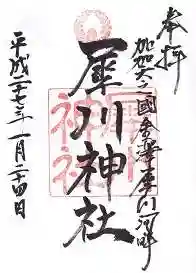 奉拝
加賀之國金澤犀川河畔
犀川神社
平成二十七年一月二十四日